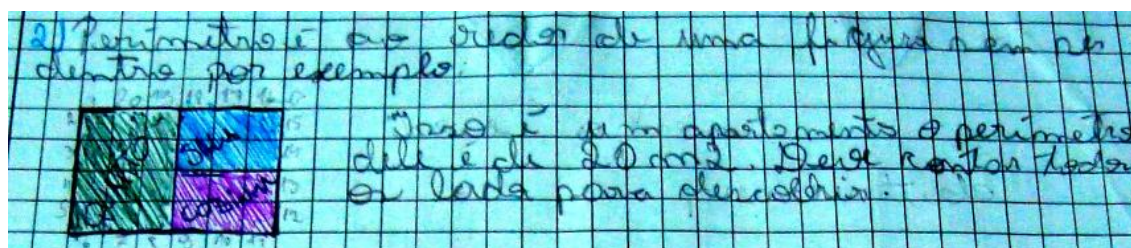 2) Perimetro é ao redor de uma figura sem ser
dentro por exemplo:
Isso é um apartamento o perimetro
dele é de 20 cm2. Deve contar todos
os lados para descobrir.
Sala
cozinha